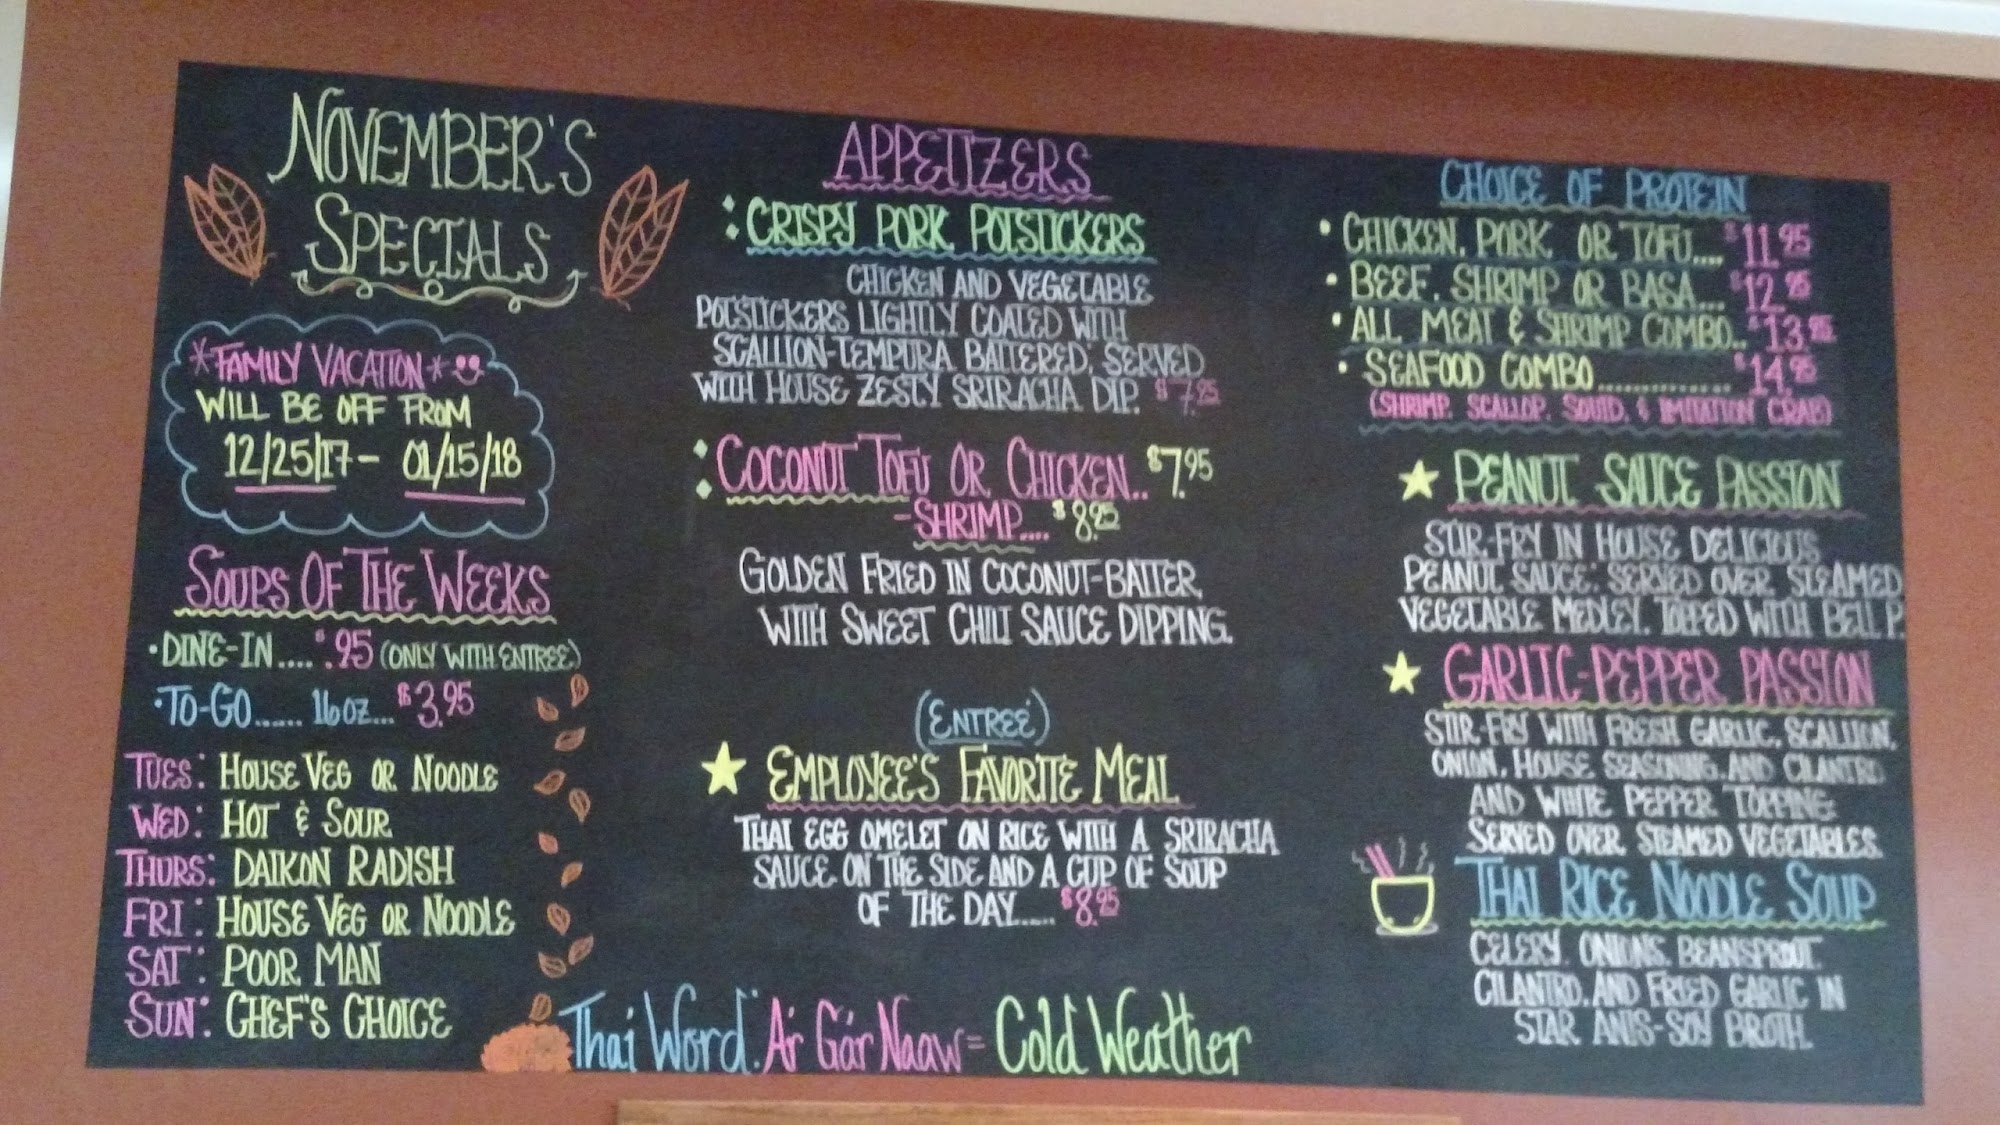 NOVEMBER'S
SPECIALS
*FAMILY VACATION*
WILL BE OFF FROM
12/25/17 - 01/15/18
SOUPS OF THE WEEKS
• DINE-IN.... $.95 (ONLY WITH ENTREE)
• TO-GO...... 16oz... $3.95
TUES: HOUSE VEG OR NOODLE
WED: HOT & SOUR
THURS: DAIKON RADISH
FRI: HOUSE VEG OR NOODLE
SAT: POOR MAN
SUN: CHEF'S CHOICE
APPETIZERS
CRISPY PORK POTSTICKERS
CHICKEN AND VEGETABLE
POTSTICKERS LIGHTLY COATED WITH
SCALLION-TEMPURA BATTERED, SERVED
WITH HOUSE ZESTY SRIRACHA DIP. $7.95
COCONUT TOFU OR CHICKEN.. $7.95
-SHRIMP.... $8.95
GOLDEN FRIED IN COCONUT-BATTER
WITH SWEET CHILI SAUCE DIPPING.
(ENTREÉ)
EMPLOYEE'S FAVORITE MEAL
THAI EGG OMELET ON RICE WITH A SRIRACHA
SAUCE ON THE SIDE AND A CUP OF SOUP
OF THE DAY..... $8.95
Thai Word: Ar Gár Naaw = Cold Weather
CHOICE OF PROTEIN
• CHICKEN, PORK OR TOFU.... $11.95
• BEEF, SHRIMP OR BASA... $12.95
• ALL MEAT & SHRIMP COMBO.. $13.95
• SEAFOOD COMBO............... $14.95
(SHRIMP, SCALLOP, SQUID, & IMITATION CRAB)
PEANUT SAUCE PASSION
STIR-FRY IN HOUSE DELICIOUS
PEANUT SAUCE; SERVED OVER STEAMED
VEGETABLE MEDLEY, TOPPED WITH BELL P.
GARLIC-PEPPER PASSION
STIR-FRY WITH FRESH GARLIC, SCALLION,
ONION, HOUSE SEASONING, AND CILANTRO
AND WHITE PEPPER TOPPING
SERVED OVER STEAMED VEGETABLES.
THAI RICE NOODLE SOUP
CELERY, ONIONS, BEANSPROUT,
CILANTRO, AND FRIED GARLIC IN
STAR ANIS-SOY BROTH.